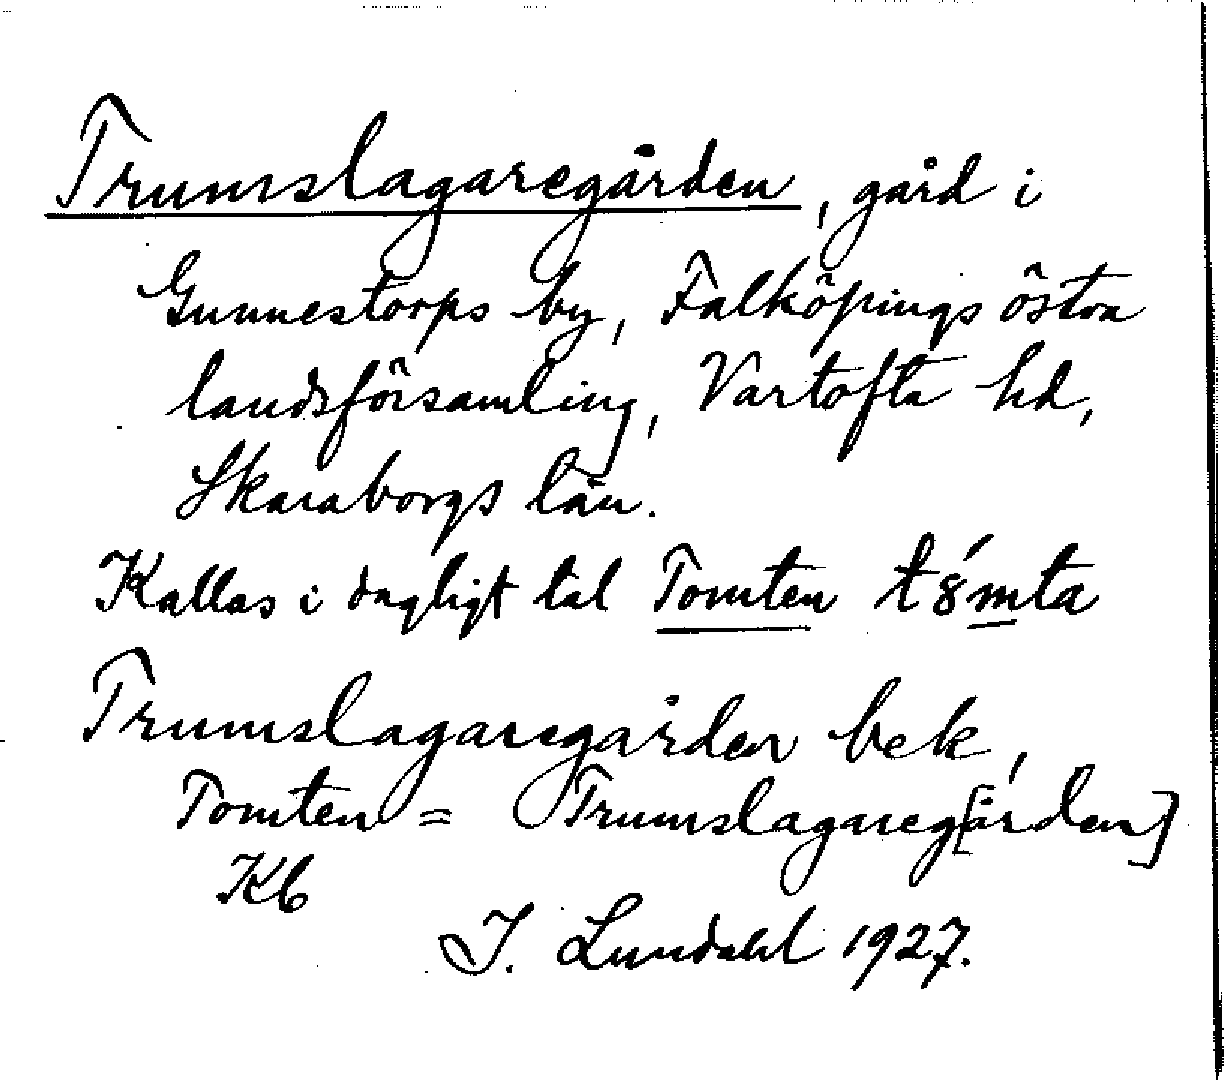 Trumslagaregården, gård i
Gunnestorps by, Falköpings östra
landsförsamling, Vartofta hd,
Skaraborgs län.
Kallas i dagligt tal Tomten t8́mta
Trumslagaregården bek,
Tomten = Trumslagareg[ården]
Kb
I. Lundahl 1927.